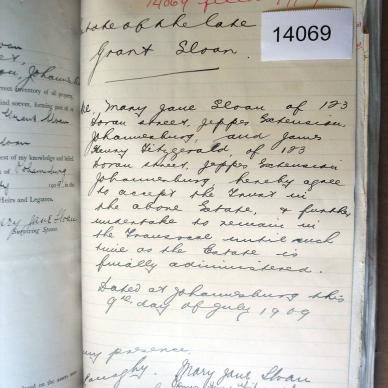 14069
14069
Estate of the late
Grant Sloan.
We, Mary Jane Sloan of 183
Doran street, Jeppes Extension,
Johannesburg, and James
Henry Fitzgerald, of 183
Doran street, Jeppes Extension
Johannesburg, hereby agree
to accept the Trust in
the above Estate, & further
undertake to remain in
the Transvaal until such
time as the Estate is
finally administered.
Dated at Johannesburg this
9th day of July 1909
my presence
Mary Jane Sloan
Sloan
Johannesbu
rrect inventory of all property,
ind soever, forming part of
Grant Sloan
Sloan
est of my knowledge and belief.
of Johannesburg
190
Heirs and Legatees.
ary Jane Sloan
Surviving Spouse